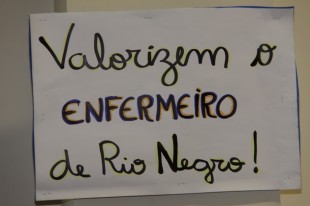 Valorizem o
ENFERMEIRO
de Rio Negro!